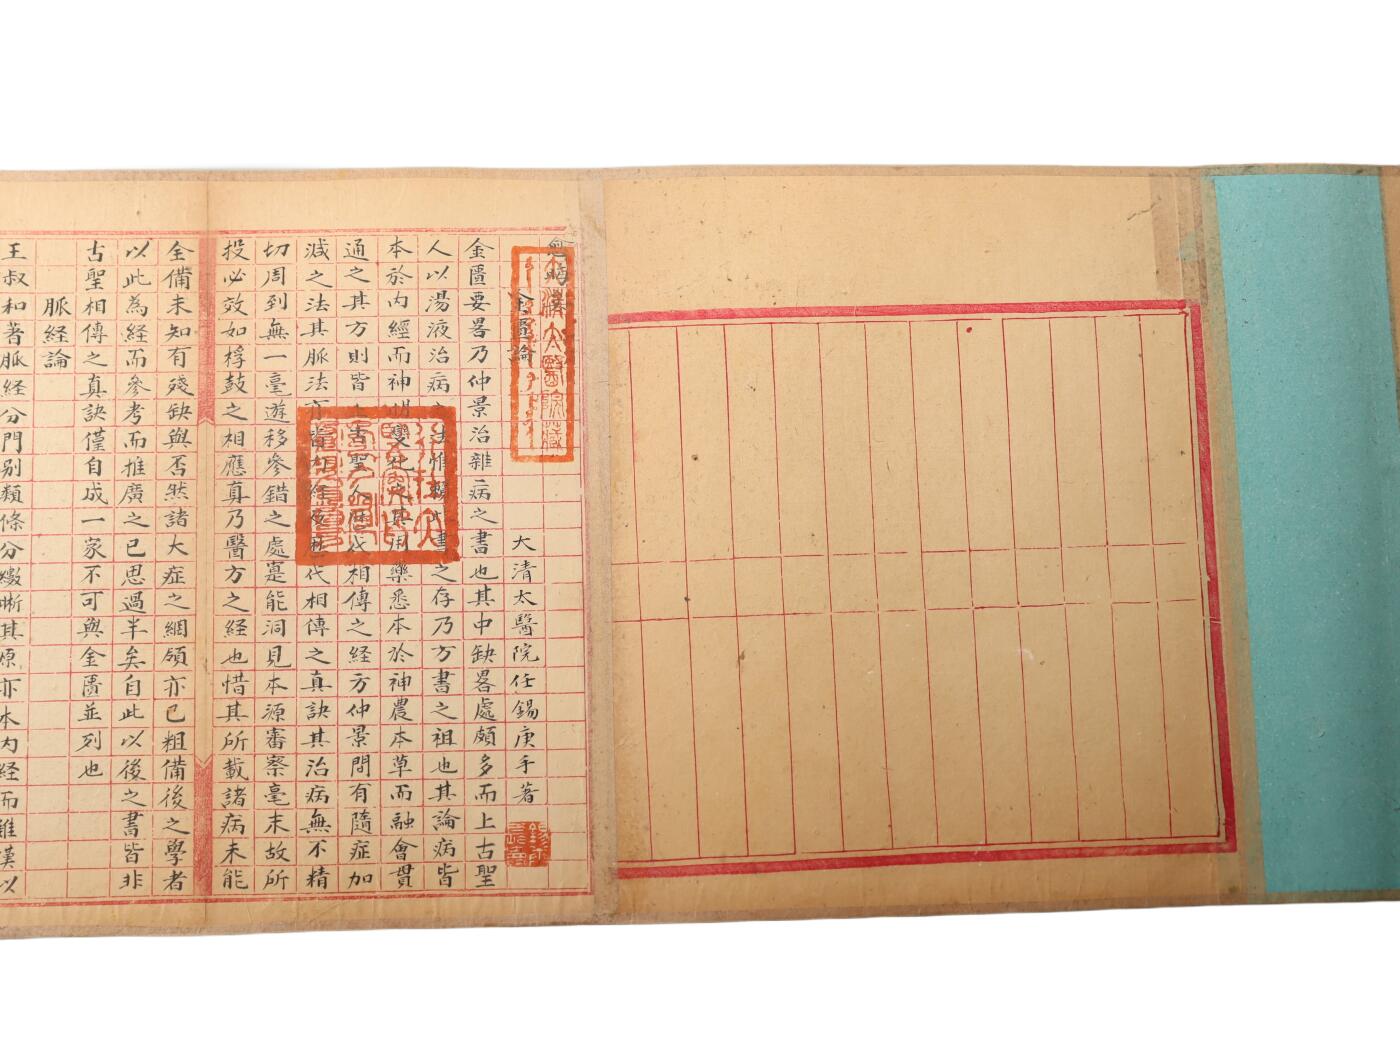 金匱論
大清太醫院任錫庚手著
金匱要畧乃仲景治雜病之書也其中缺畧處頗多而上古聖
人以湯液治病之法惟賴此書之存乃方書之祖也其論病皆
本於內經而神明變化之其用藥悉本於神農本草而融會貫
通之其方則皆上古聖人歷代相傳之経方仲景間有隨症加
減之法其脈法亦皆歷代相傳之真訣其治病無不精
切周到無一毫遊移參錯之處寔能洞見本源審察毫末故所
投必效如桴鼓之相應真乃醫方之経也惜其所載諸病未能
全備未知有殘缺與否然諸大症之綱領亦已粗備後之學者
以此為経而參考而推廣之已思過半矣自此以後之書皆非
古聖相傳之真訣僅自成一家不可與金匱並列也
脈経論
王叔和著脈経分門别類條分縷晰其原亦本內経而雜漢以
大清太醫院藏